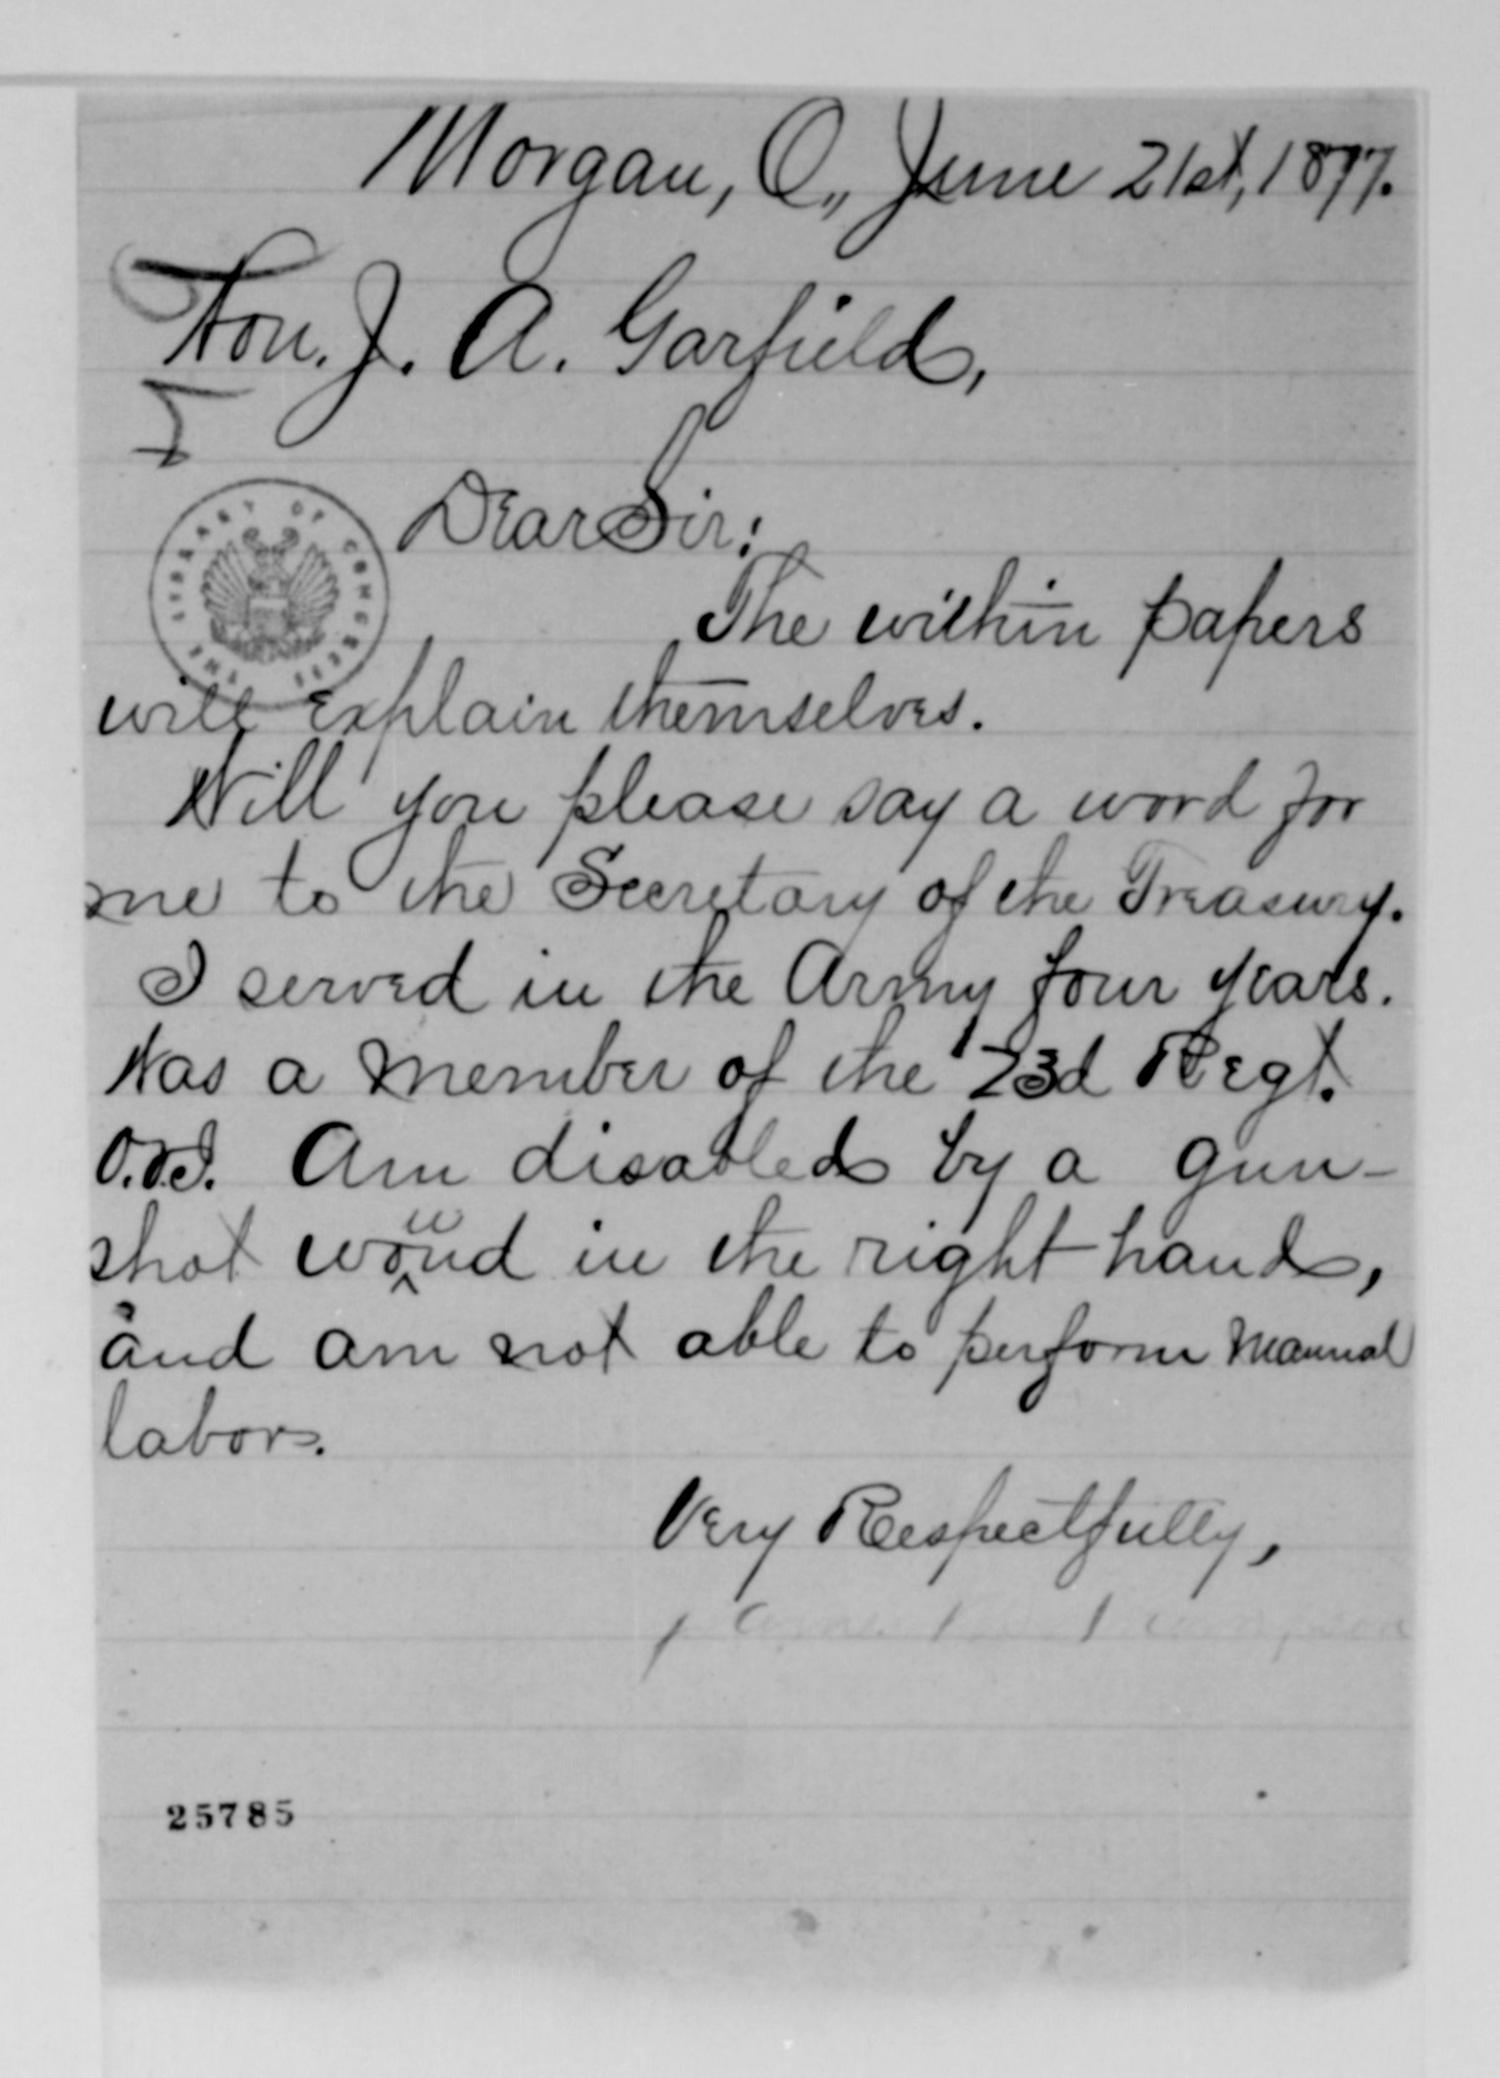 Morgan, O., June 21st, 1877.
Hon. J. A. Garfield,
Dear Sir:
THE LIBRARY OF CONGRESS
The within papers
will explain themselves.
Will you please say a word for
me to the Secretary of the Treasury.
I served in the Army four years.
Was a member of the 23d Regt.
O.V.I. Am disabled by a gun-
shot wound in the right hand,
and am not able to perform manual
labor.
Very Respectfully,
25785